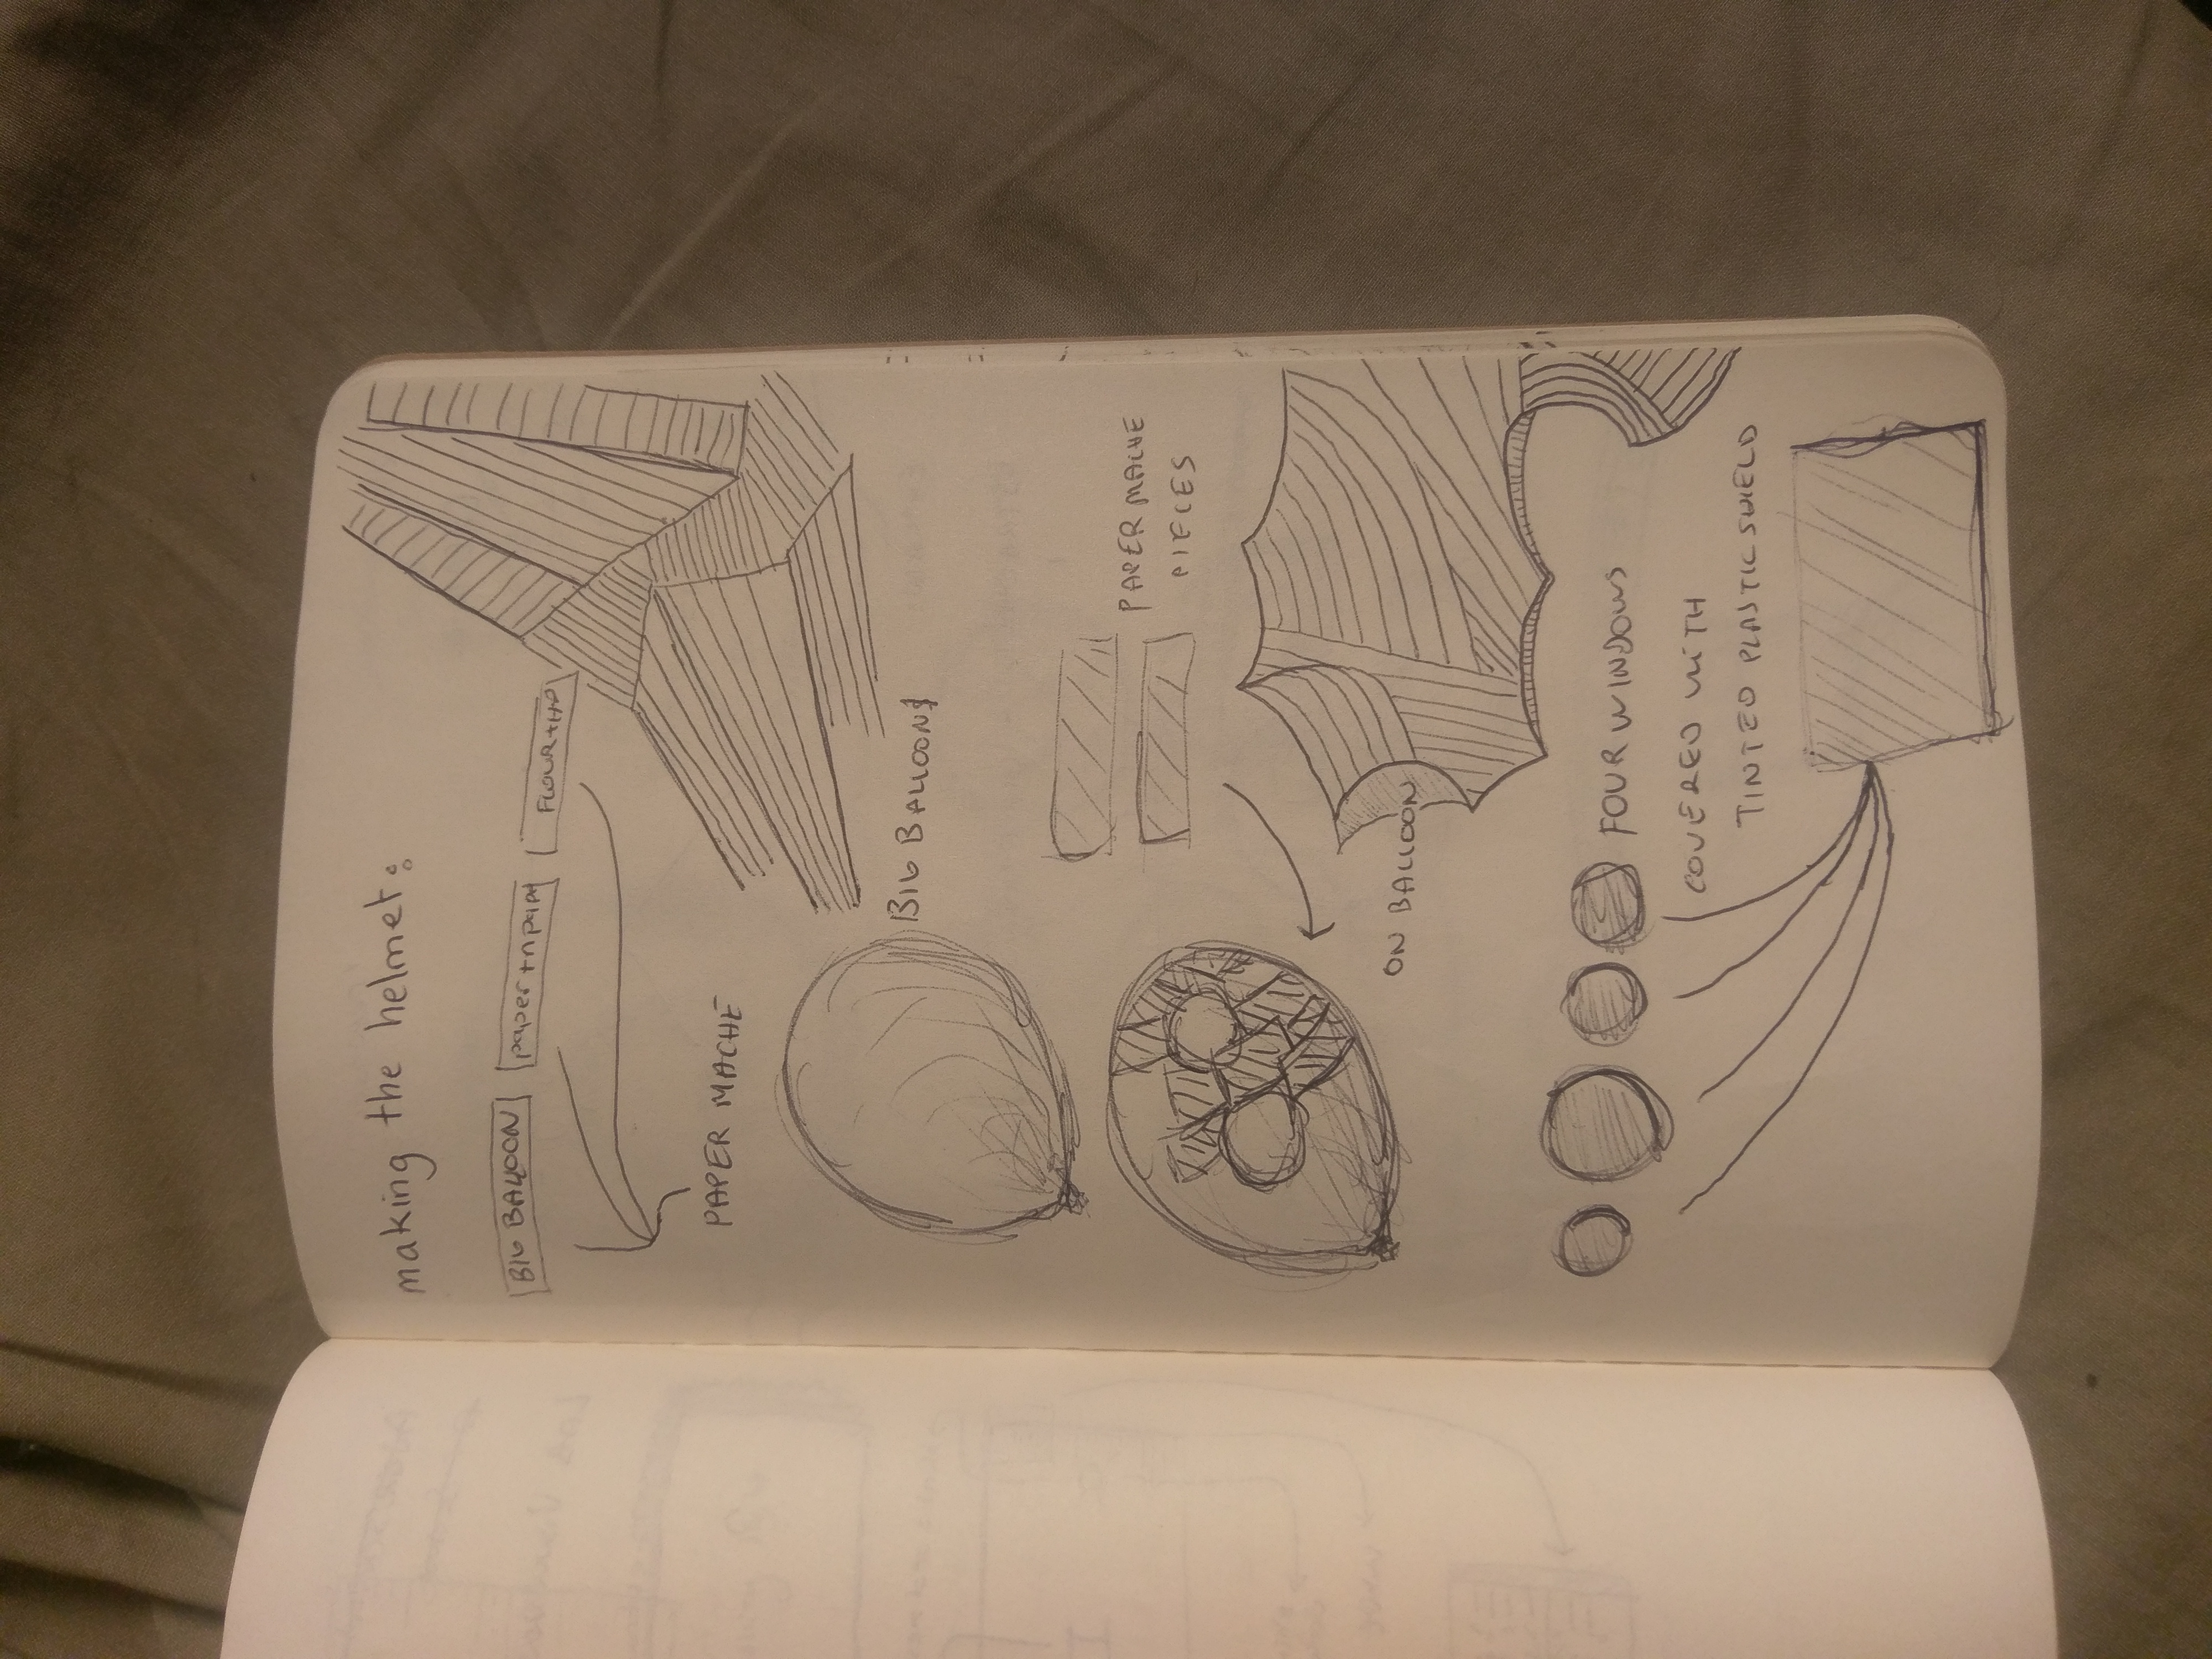 making the helmet:
BIG BALLOON paper+npap FLOUR+H2O
PAPER MACHE
BIG BALLOON
PAPER MACHE
PIECES
ON BALLOON
FOUR WINDOWS
COVERED WITH
TINTED PLASTIC SHIELD